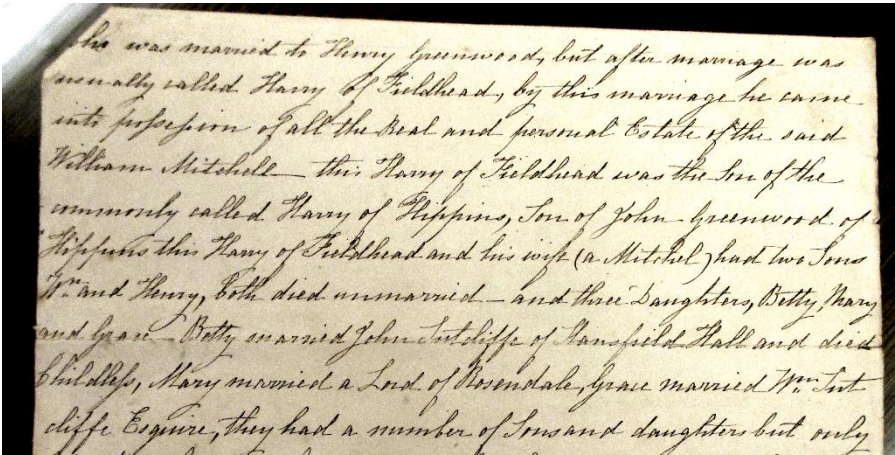 she was married to Henry Greenwood, but after marriage was
usually called Harry of Fieldhead, by this marriage he came
into possession of all the Real and personal Estate of the said
William Mitchell — this Harry of Fieldhead was the Son of the
commonly called Harry of Hippins, Son of John Greenwood of
Hippins this Harry of Fieldhead and his wife (a Mitchel) had two Sons
Wm and Henry, both died unmarried — and three Daughters, Betty, Mary
and Grace — Betty married John Sutcliffe of Stansfield Hall and died
Childless, Mary married a Lord of Rosendale, Grace married Wm. Sut
cliffe Esquire, they had a number of Sons and daughters but only